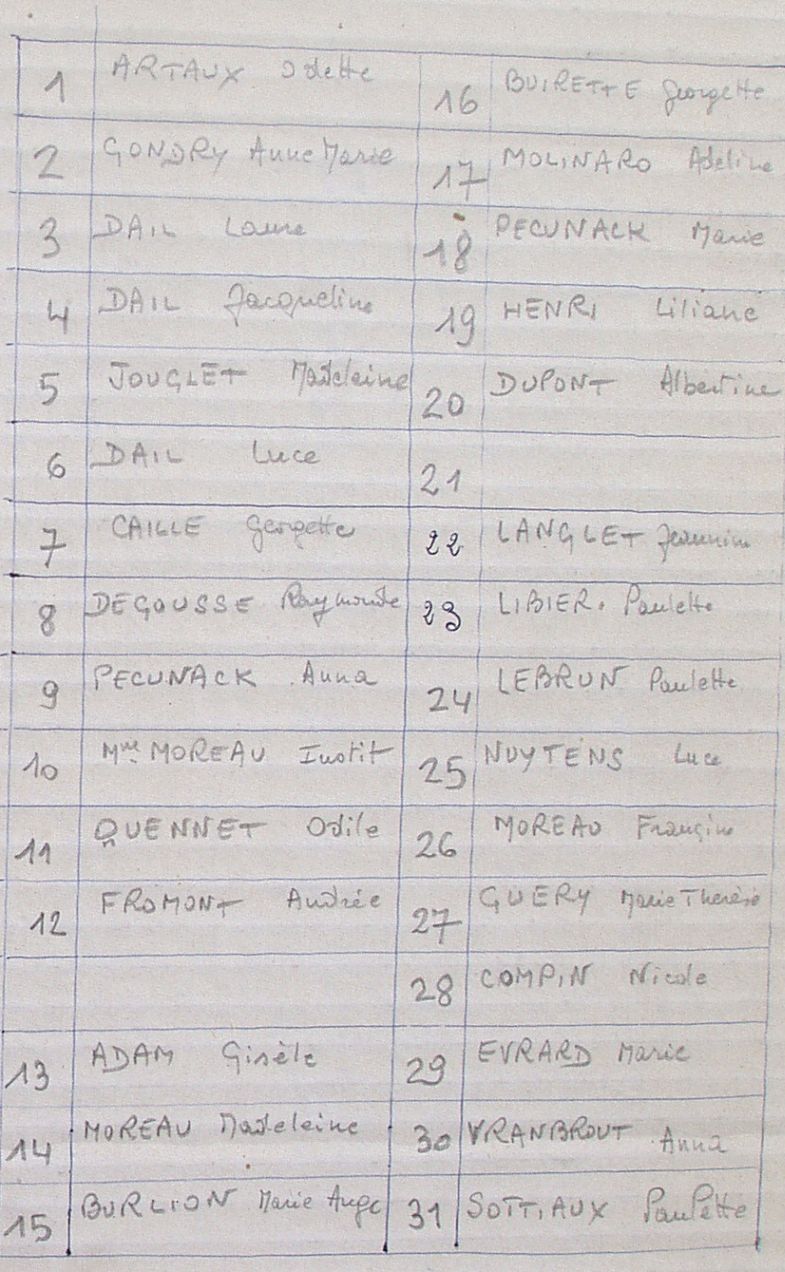 1 ARTAUX Odette
2 GONDRY Anne Marie
3 DAIL Laure
4 DAIL Jacqueline
5 JOUGLET Madeleine
6 DAIL Luce
7 CAILLE Georgette
8 DEGOUSSE Raymonde
9 PECUNACK Anna
10 Mme MOREAU Instit
11 QUENNET Odile
12 FROMONT Andrée
13 ADAM Gisèle
14 MOREAU Madeleine
15 BURLION Marie Ange
16 BUIRETTE Georgette
17 MOLINARO Adeline
18 PECUNACK Marie
19 HENRI Liliane
20 DUPONT Albertine
21
22 LANGLET Jeannine
23 LIBIER. Paulette
24 LEBRUN Paulette
25 NUYTENS Luce
26 MOREAU Francine
27 GUERY Marie Thérèse
28 COMPIN Nicole
29 EVRARD Marie
30 VRANBROUT Anna
31 SOTTIAUX Paulette